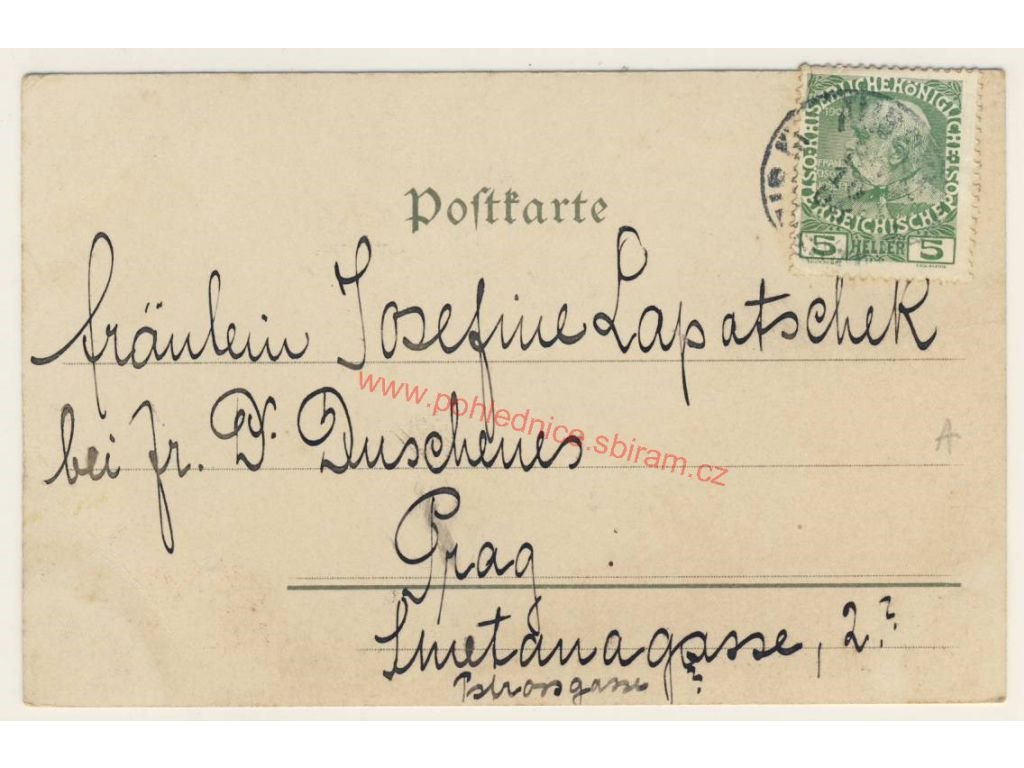 Postkarte
KAISERLICHE KÖNIGLICHE
ÖSTERREICHISCHE
5 HELLER 5
Fräulein Josefine Lapatschek
www.pohlednice.sbiram.cz
bei Fr. Dr. Duschenes
A
Prag
Smetanagasse, 2?
Pstrossgasse ?